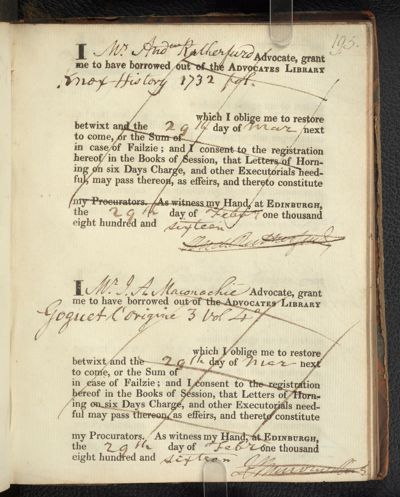 195.
I Mr. Andw Rutherfurd Advocate, grant
me to have borrowed out of the ADVOCATES LIBRARY
Knox History 1732 fol.
which I oblige me to restore
betwixt and the 29th day of Mar next
to come, or the Sum of
in case of Failzie ; and I consent to the registration
hereof in the Books of Session, that Letters of Horn-
ing on six Days Charge, and other Executorials need-
ful, may pass thereon, as effeirs, and thereto constitute
my Procurators. As witness my Hand, at EDINBURGH,
the 29th day of Feby one thousand
eight hundred and sixteen
I Mr. J. A. Maconochie Advocate, grant
me to have borrowed out of the ADVOCATES LIBRARY
Goguet L'origine 3 Vol 4o
which I oblige me to restore
betwixt and the 29th day of Mar next
to come, or the Sum of
in case of Failzie ; and I consent to the registration
hereof in the Books of Session, that Letters of Horn-
ing on six Days Charge, and other Executorials need-
ful may pass thereon, as effeirs, and thereto constitute
my Procurators. As witness my Hand, at EDINBURGH,
the 29th day of Febr one thousand
eight hundred and sixteen